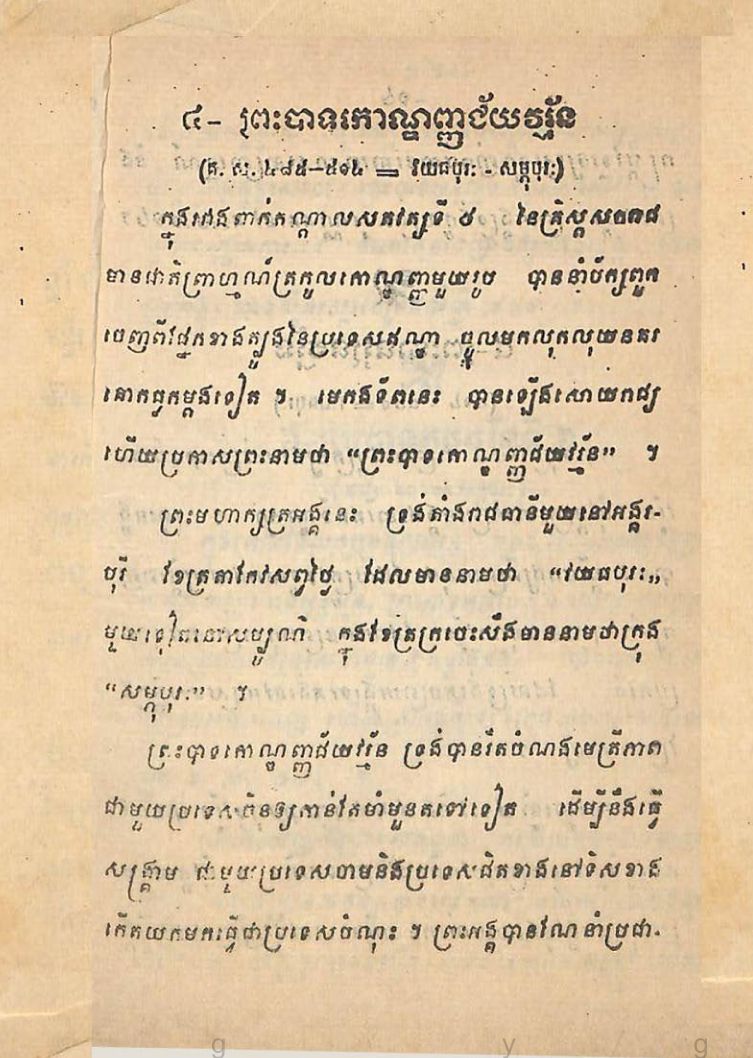 ៤- ព្រះបាទកោណ្ឌញ្ញជ័យវរ្ម័ន
(គ. ស. ៤៨៥-៥១៤ = វយធបុរៈ - សម្ភុបុរៈ)
ក្នុងរវាងពាក់កណ្តាលសតវត្សទី ៥ នៃគ្រិស្តសករាជ
មានជាតិព្រាហ្មណ៍ត្រកូលកោណ្ឌញ្ញមួយរូប បាននាំបក្សពួក
ចេញពីផ្នែកខាងត្បូងនៃប្រទេសឥណ្ឌា ចូលមកលុកលុយនគរ
គោកធ្លកម្តងទៀត ។ មេកងទ័ពនេះ បានឡើងសោយរាជ្យ
ហើយប្រកាសព្រះនាមថា “ព្រះបាទកោណ្ឌញ្ញជ័យវរ្ម័ន” ។
ព្រះមហាក្សត្រអង្គនេះ ទ្រង់តាំងរាជធានីមួយនៅអង្គរ-
បុរី ខែត្រតាកែវសព្វថ្ងៃ ដែលមាននាមថា “វយធបុរៈ„
មួយទៀតនៅសម្បូណ៌ ក្នុងខែត្រក្រចេះសឹងមាននាមថាក្រុង
“សម្ភុបុរៈ” ។
ព្រះបាទកោណ្ឌញ្ញជ័យវរ្ម័ន ទ្រង់បានរឹតចំណងមេត្រីភាព
ជាមួយប្រទេសចិនឲ្យកាន់តែមាំមួនតទៅទៀត ដើម្បីនឹងធ្វើ
សង្គ្រាម ជាមួយប្រទេសចាមនិងប្រទេសជិតខាងនៅទិសខាង
កើតយកមកធ្វើជាប្រទេសចំណុះ ។ ព្រះអង្គបានណែនាំប្រជា-
g y g